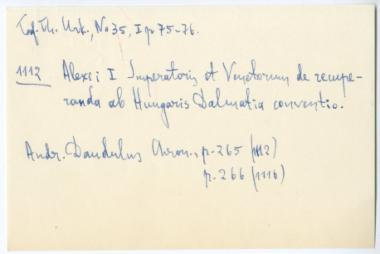 Taf. Th. Urk., No 35, I p 75-76.
1112 Alexii I Imperatoris et Venetorum de recupe-
randa ab Hungaris Dalmatia conventio.
Andr. Dandulus Chron., p. 265 (1112)
p. 266 (1116)